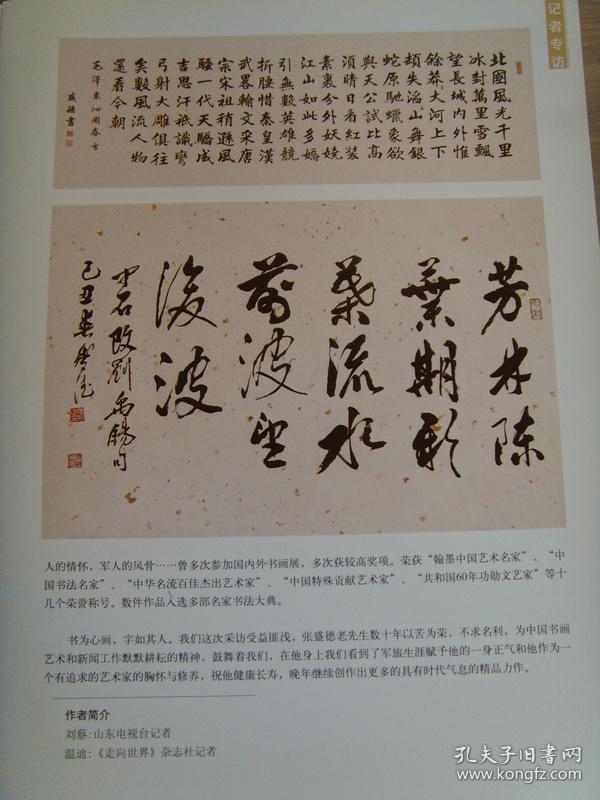 记者专访
北國風光千里
冰封萬里雪飄
望長城內外惟
餘莽大河上下
頓失滔山舞銀
蛇原馳蠟象欲
與天公試比高
須晴日看紅裝
素裹分外妖嬈
江山如此多嬌
引無數英雄競
折腰惜秦皇漢
武略輸文采唐
宗宋祖稍遜風
騷一代天驕成
吉思汗祇識彎
弓射大雕俱往
矣數風流人物
還看今朝
毛澤東沁園春雪
盛德書
芳林陳
葉期新
葉流水
前波望
後波
中石改劉禹錫句
己丑春盛德
人的情怀，军人的风骨……曾多次参加国内外书画展，多次获较高奖项。荣获“翰墨中国艺术名家”、“中
国书法名家”、“中华名流百佳杰出艺术家”、“中国特殊贡献艺术家”、“共和国60年功勋文艺家”等十
几个荣誉称号。数件作品入选多部名家书法大典。
书为心画，字如其人。我们这次采访受益匪浅，张盛德老先生数十年以苦为荣，不求名利，为中国书画
艺术和新闻工作默默耕耘的精神，鼓舞着我们，在他身上我们看到了军旅生涯赋予他的一身正气和他作为一
个有追求的艺术家的胸怀与修养，祝他健康长寿，晚年继续创作出更多的具有时代气息的精品力作。
作者简介
刘蔡:山东电视台记者
温迪:《走向世界》杂志社记者
孔夫子旧书网
www.kongfz.com